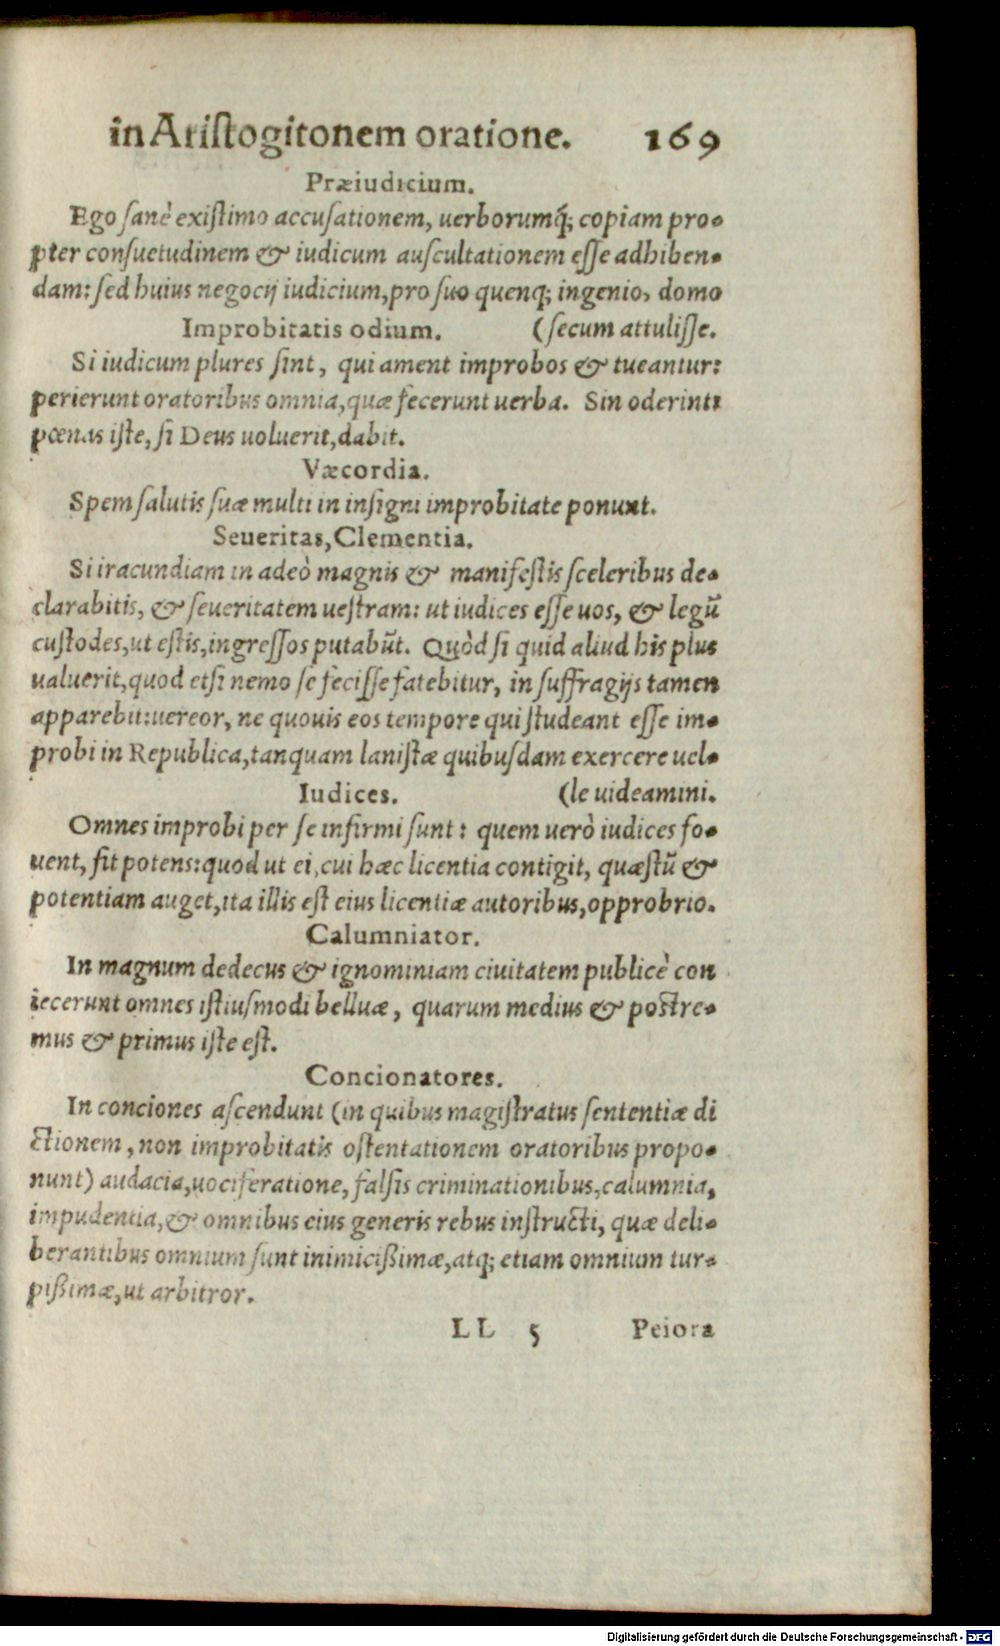 in Aristogitonem oratione. 169
Præiudicium.
Ego sanè existimo accusationem, uerborumq́; copiam pro-
pter consuetudinem & iudicum auscultationem esse adhiben-
dam: sed huius negocij iudicium, pro suo quenq; ingenio, domo
Improbitatis odium. (secum attulisse.
Si iudicum plures sint, qui ament improbos & tueantur:
perierunt oratoribus omnia, quæ fecerunt uerba. Sin oderint:
pœnas iste, si Deus uoluerit, dabit.
Væcordia.
Spem salutis suæ multi in insigni improbitate ponunt.
Seueritas, Clementia.
Si iracundiam in adeò magnis & manifestis sceleribus de-
clarabitis, & seueritatem uestram: ut iudices esse uos, & legũ
custodes, ut estis, ingressos putabũt. Quòd si quid aliud his plus
ualuerit, quod etsi nemo se fecisse fatebitur, in suffragijs tamen
apparebit: uereor, ne quouis eos tempore qui studeant esse im-
probi in Republica, tanquam lanistæ quibusdam exercere uel-
Iudices. (le uideamini.
Omnes improbi per se infirmi sunt: quem uerò iudices fo-
uent, fit potens: quod ut ei, cui hæc licentia contigit, quæstũ &
potentiam auget, ita illis est eius licentiæ autoribus, opprobrio.
Calumniator.
In magnum dedecus & ignominiam ciuitatem publicè con
iecerunt omnes istiusmodi belluæ, quarum medius & postre-
mus & primus iste est.
Concionatores.
In conciones ascendunt (in quibus magistratus sententiæ di
ctionem, non improbitatis ostentationem oratoribus propo-
nunt) audacia, uociferatione, falsis criminationibus, calumnia,
impudentia, & omnibus eius generis rebus instructi, quæ deli-
berantibus omnium sunt inimicißimæ, atq; etiam omnium tur-
pißimæ, ut arbitror.
LL 5 Peiora
Digitalisierung gefördert durch die Deutsche Forschungsgemeinschaft - DFG